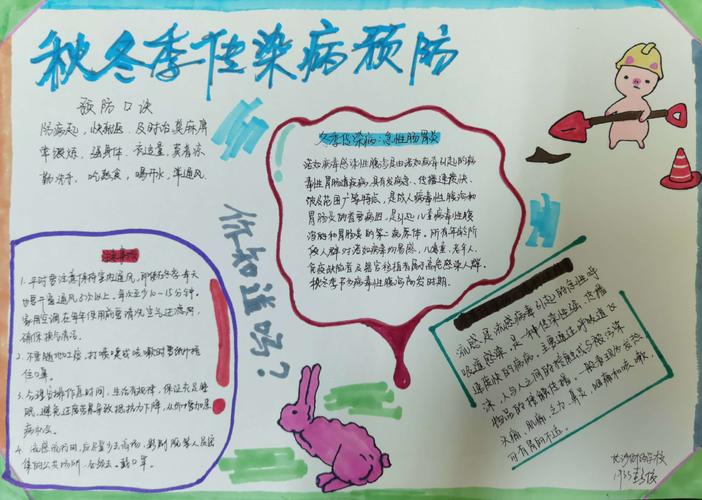 秋冬季传染病预防
预防口诀
防病起，快就医，及时治莫麻痹
常锻炼，强身体，衣适量，莫着凉
勤洗手，吃熟食，喝开水，常通风
冬季传染病：急性肠胃炎
诺如病毒感染性腹泻是由诺如病毒引起的病
毒性胃肠道疾病，具有发病急、传播速度快、
涉及范围广等特点，是成人病毒性腹泻和
胃肠炎的首要病因，是引起儿童病毒性腹
泻和胃肠炎的第二病原体。所有年龄阶
段人群对诺如病毒均易感，儿童、老年人、
免疫缺陷者及器官移植者属于高危感染人群。
秋冬季节为病毒性腹泻高发时期
你知道吗？
注意事项
1. 平时要注意保持室内通风，即使在冬季每天
也要开窗通风3次以上，每次至少10-15分钟。
家用空调在每年使用前要清洗空气过滤网，
确保换气清洁。
2. 不要随地吐痰，打喷嚏或咳嗽时要捂
住口鼻。
3. 合理安排作息时间，生活有规律，保证充足睡
眠，避免过度劳累导致抵抗力下降，从而增加患
病机会。
4. 流感流行期间，应尽量少去商场、影剧院等人员密
集的公共场所，必须去，戴口罩。
流感是流感病毒引起的急性呼
吸道感染，是一种传染性强、传播
速度快的疾病。主要通过呼吸道飞
沫、人与人之间的接触或与被污染
物品的接触传播。一般表现为发热、
头痛、肌痛、乏力、鼻炎、咽痛和咳嗽，
可有胃肠不适。
学校